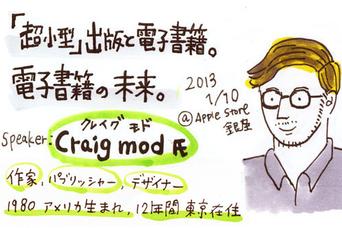 「超小型」出版と電子書籍。
電子書籍の未来。
2013
1/10
@Apple Store
銀座
クレイグ モド
Speaker: Craig mod 氏
作家, パブリッシャー, デザイナー
1980 アメリカ生まれ, 12年間 東京在住